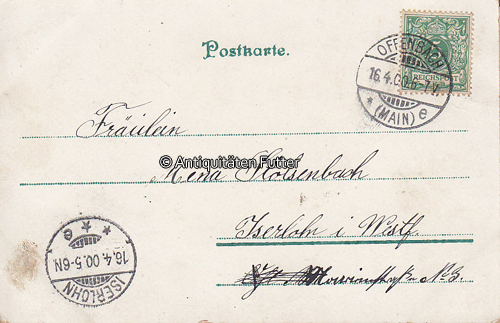 Postkarte.
OFFENBACH
16.4.00.6-7V.
* (MAIN) e
REICHSPOST
Fräulein
© Antiquitäten Futter
Mena Holsenbach
Iserlohn i Westf.
No 3.
* * e
16.4.00.5-6N
ISERLOHN